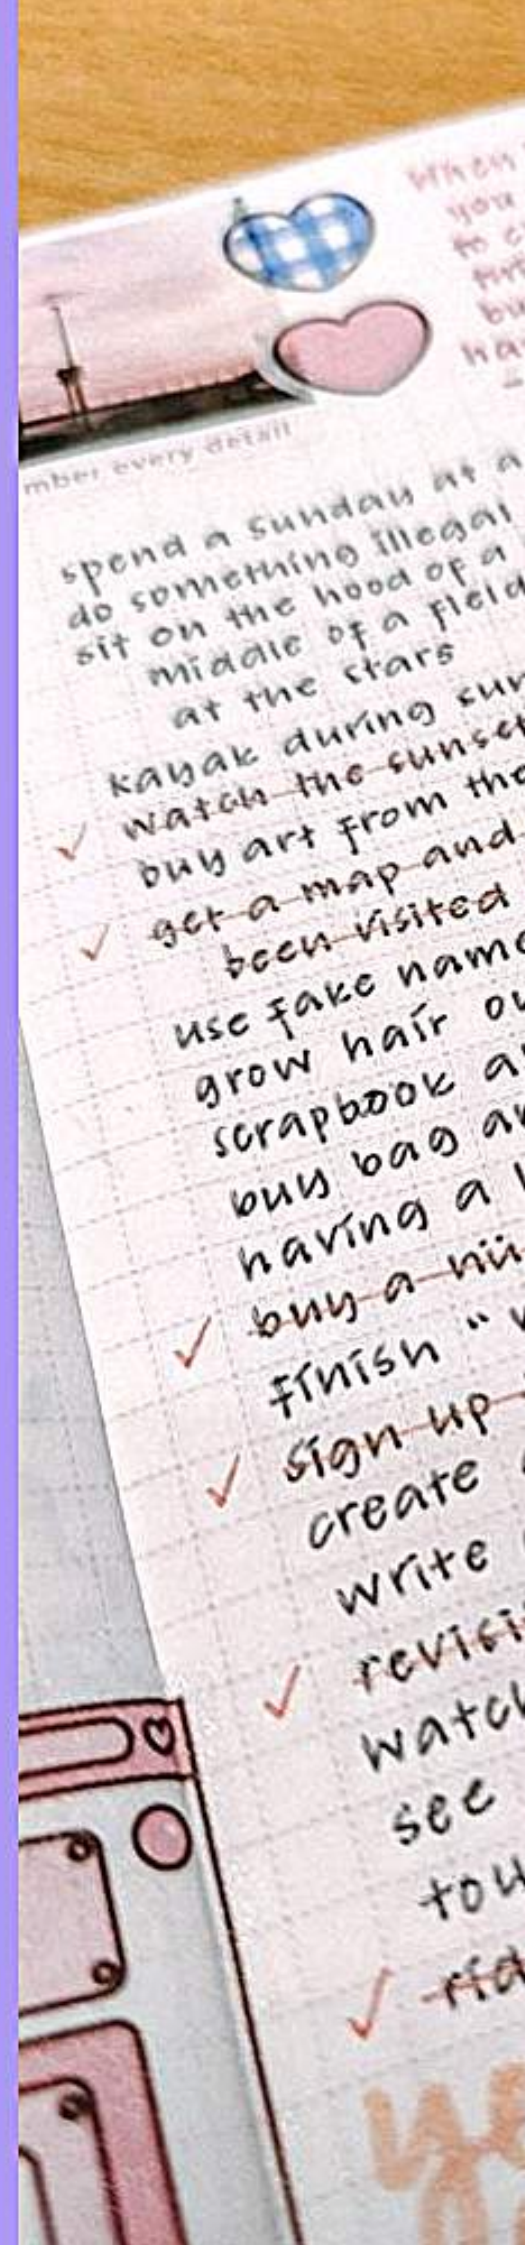 when
you
to c
bu
ha
mber every detail
spend a sunday at a
do something illegal
sit on the hood of a
middle of a field
at the stars
kayak during sun
watch the sunset
buy art from the
get a map and
been visited
use fake name
grow hair ou
scrapbook a
buy bag a
having a
buy a nü
finish "w
sign up
create
write
revisi
watch
see
tou
rid
yo